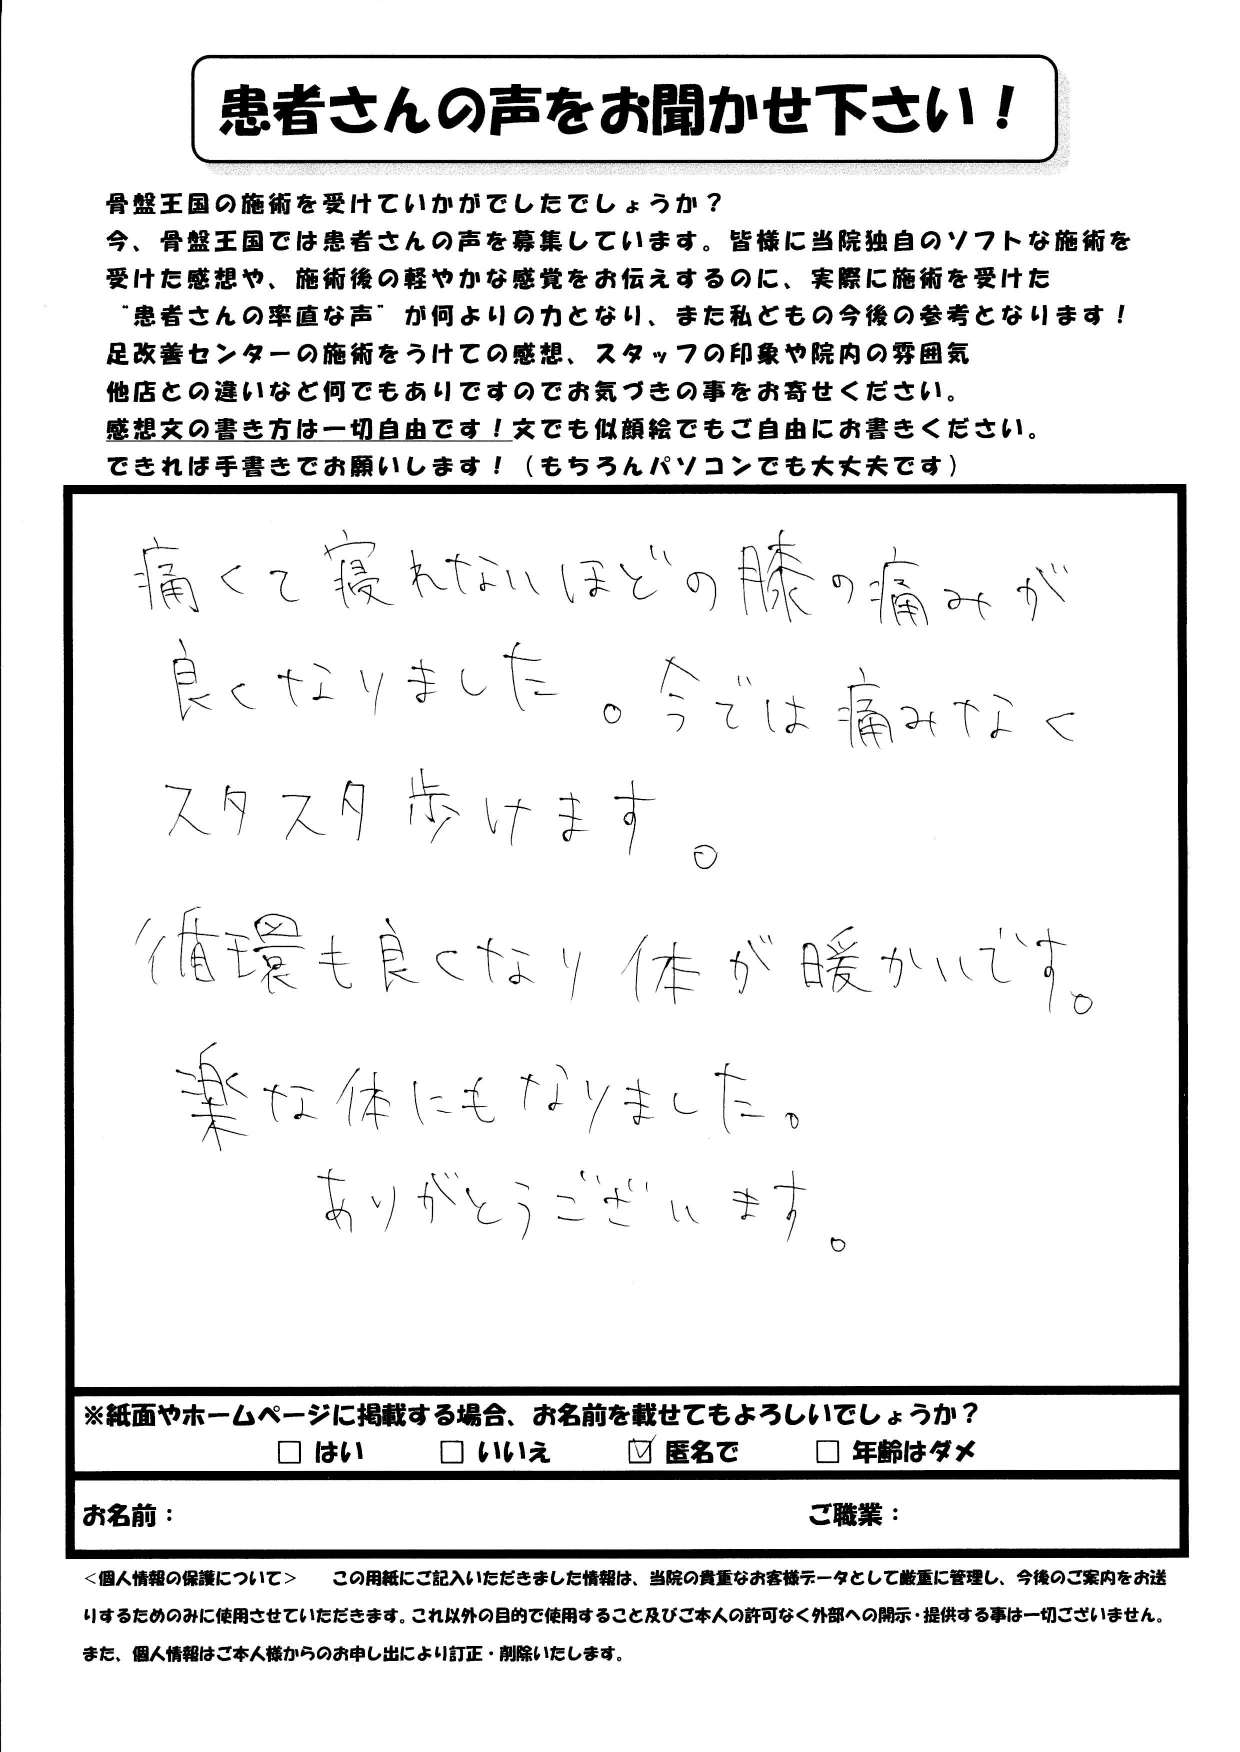 患者さんの声をお聞かせ下さい！
骨盤王国の施術を受けていかがでしたでしょうか？
今、骨盤王国では患者さんの声を募集しています。皆様に当院独自のソフトな施術を
受けた感想や、施術後の軽やかな感覚をお伝えするのに、実際に施術を受けた
“患者さんの率直な声”が何よりの力となり、また私どもの今後の参考となります！
足改善センターの施術をうけての感想、スタッフの印象や院内の雰囲気
他店との違いなど何でもありですのでお気づきの事をお寄せください。
感想文の書き方は一切自由です！文でも似顔絵でもご自由にお書きください。
できれば手書きでお願いします！（もちろんパソコンでも大丈夫です）
痛くて寝れないほどの膝の痛みが
良くなりました。今では痛みなく
スタスタ歩けます。
循環も良くなり体が暖かいです。
楽な体にもなりました。
ありがとうございます。
※紙面やホームページに掲載する場合、お名前を載せてもよろしいでしょうか？
□ はい □ いいえ ☑ 匿名で □ 年齢はダメ
お名前： ご職業：
＜個人情報の保護について＞ この用紙にご記入いただきました情報は、当院の貴重なお客様データとして厳重に管理し、今後のご案内をお送
りするためのみに使用させていただきます。これ以外の目的で使用すること及びご本人の許可なく外部への開示・提供する事は一切ございません。
また、個人情報はご本人様からのお申し出により訂正・削除いたします。